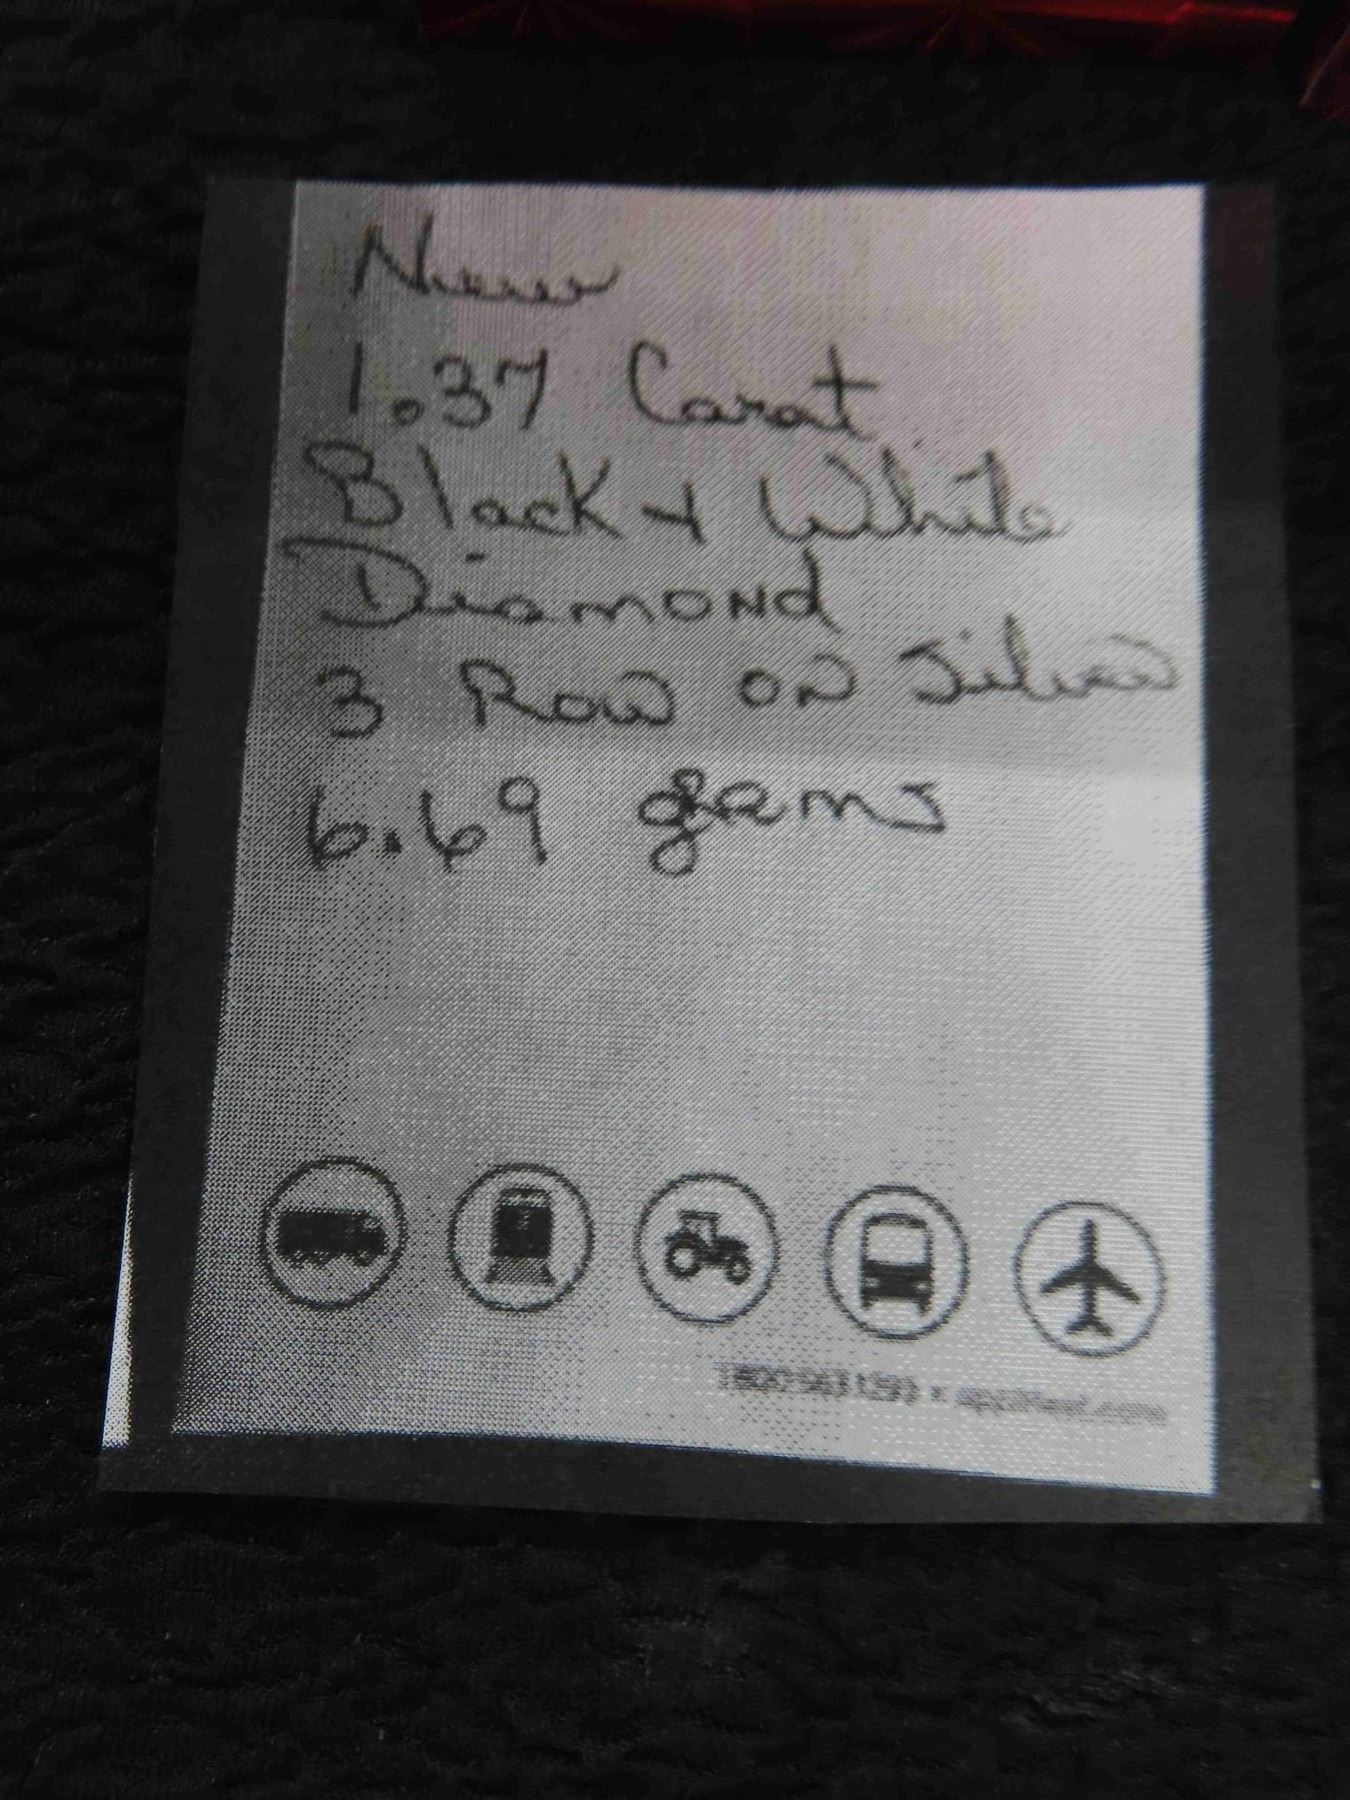 New
1.37 Carat
Black + White
Diamond
3 Row on Silver
6.69 grams